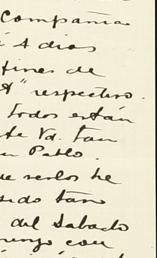 Compañia
á 4 dias
fines de
A" respectivo.
todos están
te Vd. tan
Pablo.
verlos he
sido tan
del Sabado
con